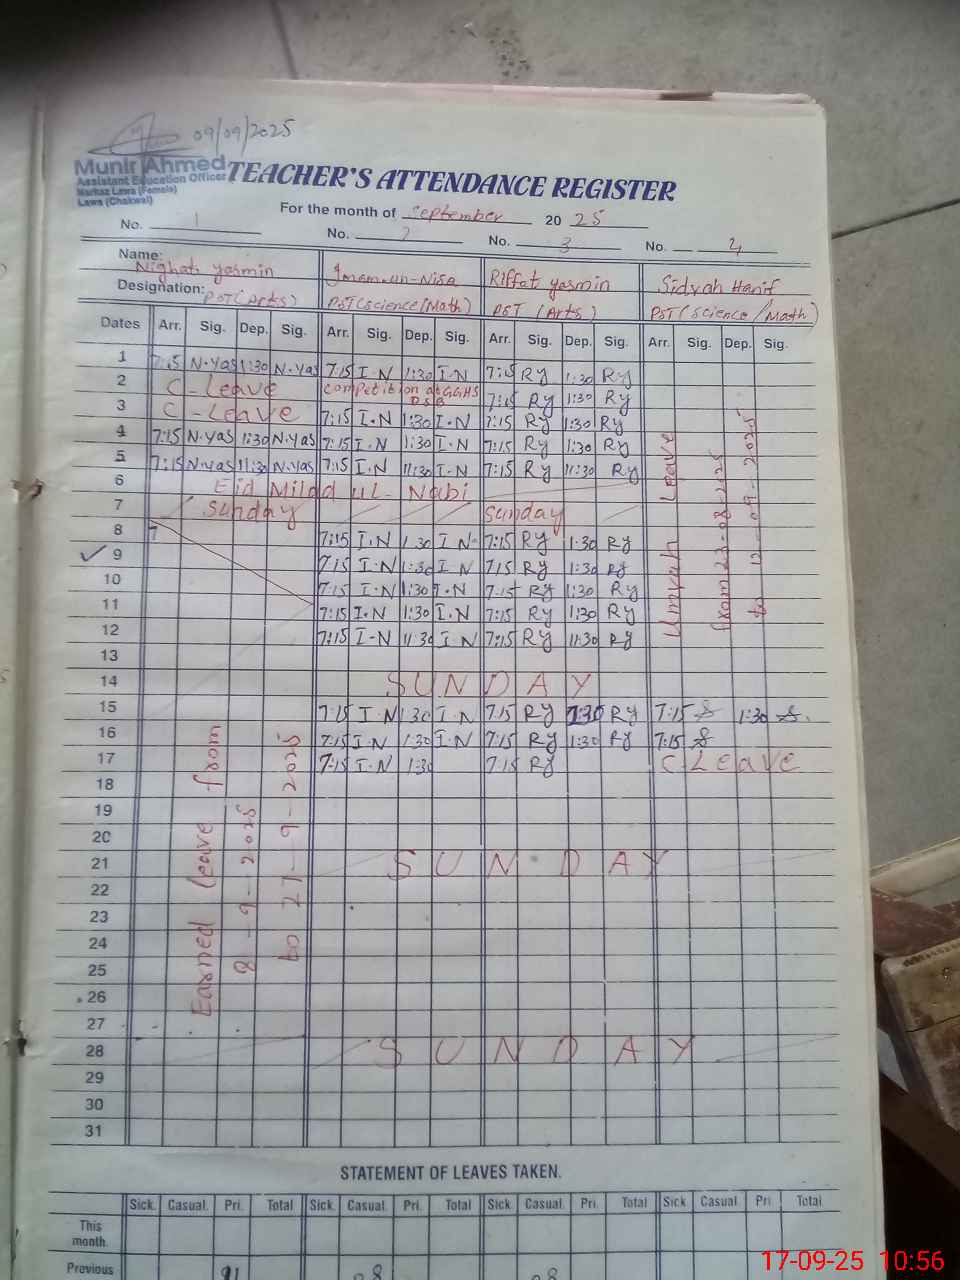 09/09/2025
Munir Ahmed
Assistant Education Officer
Markaz Lawa (Female)
Lawa (Chakwal)
TEACHER'S ATTENDANCE REGISTER
For the month of September 20 25
No. 1 No. 2 No. 3 No. 4
Name: Nighat yasmin Imam-un-Nisa Riffat yasmin Sidrah Hanif
Designation: PST (Arts) PST (science/Math) PST (Arts) PST (science/Math)
Dates Arr. Sig. Dep. Sig. Arr. Sig. Dep. Sig. Arr. Sig. Dep. Sig. Arr. Sig. Dep. Sig.
1 7:15 N.yas 1:30 N.yas 7:15 I.N 1:30 I.N 7:15 Ry 1:30 Ry
2 C-Leave competition at GGHS DSB 7:15 Ry 1:30 Ry
3 C-Leave 7:15 I.N 1:30 I.N 7:15 Ry 1:30 Ry
4 7:15 N.yas 1:30 N.yas 7:15 I.N 1:30 I.N 7:15 Ry 1:30 Ry
5 7:15 N.yas 11:30 N.yas 7:15 I.N 11:30 I.N 7:15 Ry 11:30 Ry
6 Eid Milad ul-Nabi
7 Sunday Sunday
8 7:15 I.N 1:30 I.N 7:15 Ry 1:30 Ry
9 7:15 I.N 1:30 I.N 7:15 Ry 1:30 Ry
10 7:15 I.N 1:30 I.N 7:15 Ry 1:30 Ry
11 7:15 I.N 1:30 I.N 7:15 Ry 1:30 Ry
12 7:15 I-N 11:30 I.N 7:15 Ry 11:30 Ry
Umrah Leave
from 23-08-2025
to 12-09-2025
13
14 SUNDAY
15 7:15 I.N 1:30 I.N 7:15 Ry 1:30 Ry 7:15 1:30
16 7:15 I.N 1:30 I.N 7:15 Ry 1:30 Ry 7:15
17 7:15 I.N 1:30 7:15 Ry C Leave
18
19
20
21 SUNDAY
22
23
24
25
26
27
28 SUNDAY
29
30
31
Earned leave from
8-9-2025
to 27-9-2025
STATEMENT OF LEAVES TAKEN.
Sick. Casual. Pri. Total Sick. Casual. Pri. Total Sick. Casual. Pri. Total Sick. Casual. Pri. Total
This month.
Previous 08 08
17-09-25 10:56